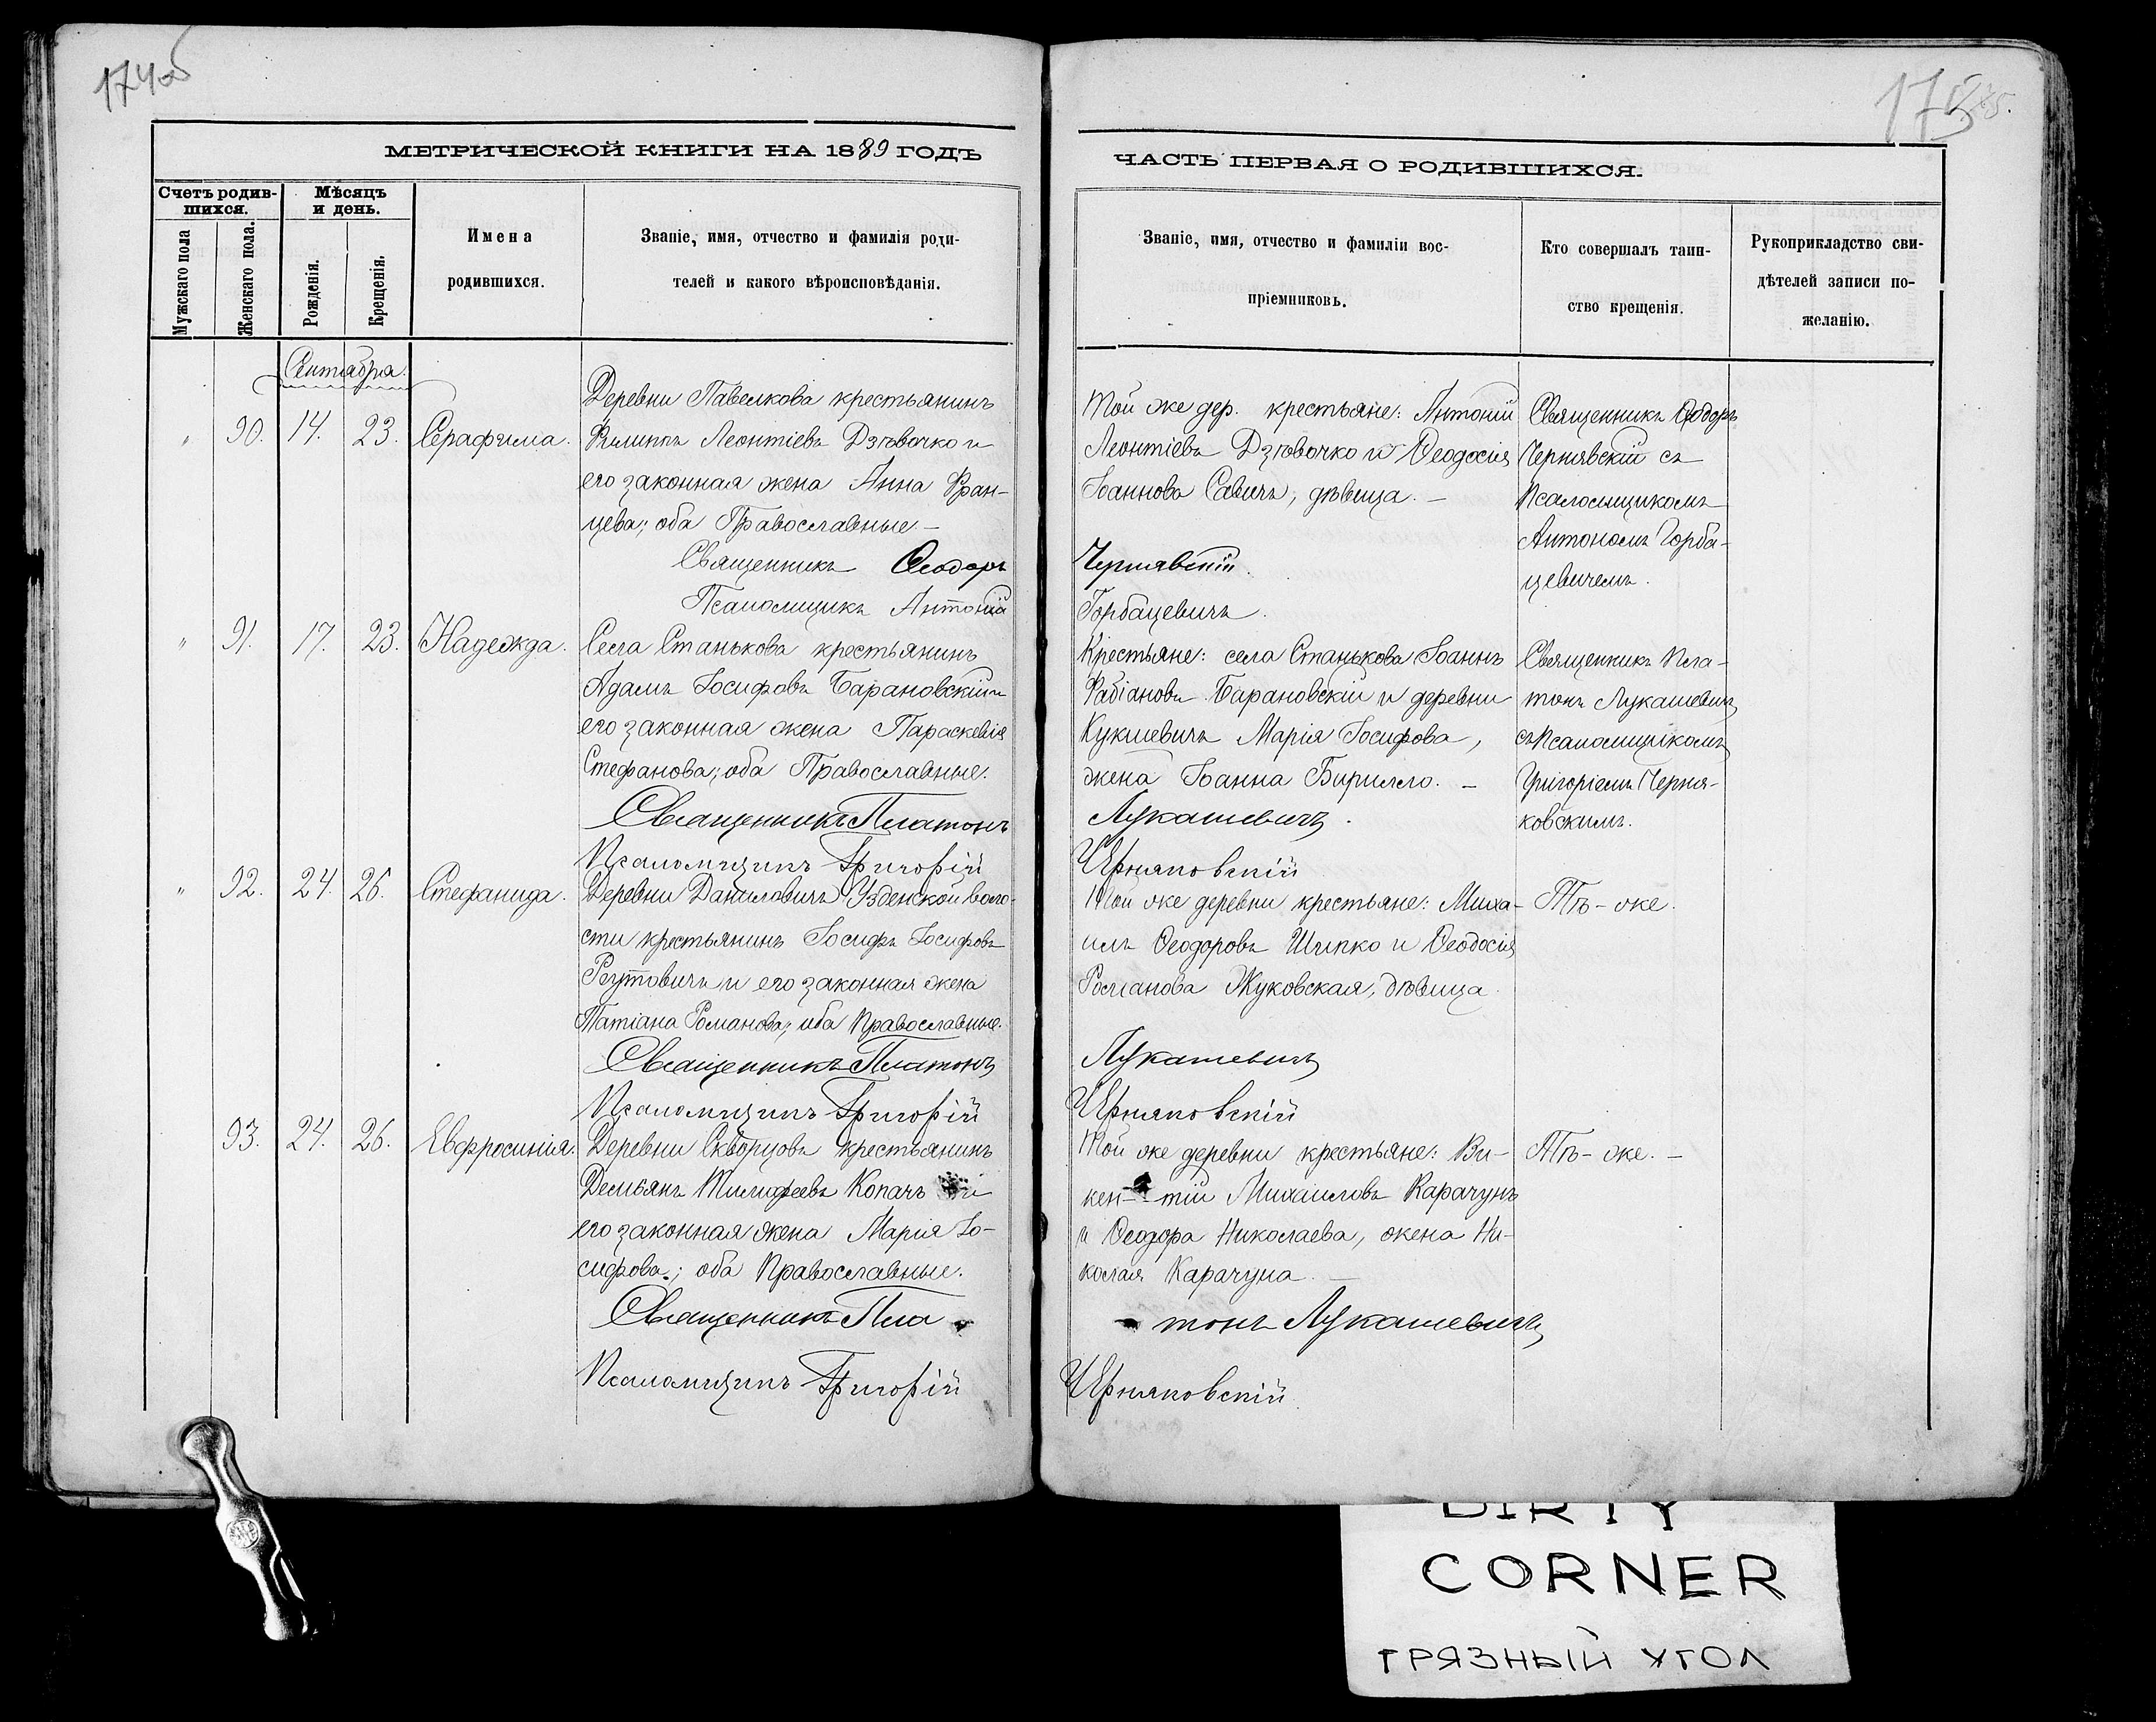 174об
МЕТРИЧЕСКОЙ КНИГИ НА 1889 ГОДЪ
Счетъ родив-
шихся.
Мужскаго пола
Женскаго пола.
Мѣсяцъ
и день.
Рожденія.
Крещенія.
Имена
родившихся.
Званіе, имя, отчество и фамилія роди-
телей и какого вѣроисповѣданія.
Сентября.
" 90. 14. 23. Серафима.
Деревни Павелкова крестьянинъ
Филиппъ Леонтіевъ Дзѣвочко и
его законная жена Анна Фран-
цева; оба Православные –
Священникъ Ѳеодоръ
Псаломщикъ Антоній
" 91. 17. 23. Надежда.
Села Станькова крестьянинъ
Адамъ Іосифовъ Барановскій и
его законная жена Параскевія
Стефанова; оба Православные.
Священникъ Платонъ
Псаломщикъ Григорій
" 92. 24. 26. Стефанида.
Деревни Даниловичъ Узденской воло-
сти крестьянинъ Іосифъ Іосифовъ
Реутовичъ и его законная жена
Татіана Романова; оба Православные.
Священникъ Платонъ
Псаломщикъ Григорій
93. 24. 26. Евфросинія.
Деревни Скворцовъ крестьянинъ
Демьянъ Тимофеевъ Копачъ и
его законная жена Марія Іо-
сифова; оба Православные.
Священникъ Пла
Псаломщикъ Григорій
175
ЧАСТЬ ПЕРВАЯ О РОДИВШИХСЯ.
Званіе, имя, отчество и фамиліи вос-
пріемниковъ.
Кто совершалъ таин-
ство крещенія.
Рукоприкладство сви-
дѣтелей записи по-
желанію.
Той же дер. крестьяне: Антоній
Леонтіевъ Дзѣвочко и Ѳеодосія
Іоаннова Савичъ, дѣвица. –
Чернявскій.
Горбацевичъ.
Священникъ Ѳеодоръ
Чернявскій съ
Псаломщикомъ
Антономъ Горба-
цевичемъ.
Крестьяне: села Станькова Іоаннъ
Фабіановъ Барановскій и деревни
Кукшевичъ Марія Іосифова,
жена Іоанна Бирилло. –
Лукашевичъ.
Черняковскій
Священникъ Пла-
тонъ Лукашевичъ
съ Псаломщикомъ
Григоріемъ Черня-
ковскимъ.
Той же деревни крестьяне: Миха-
илъ Ѳеодоровъ Шипко и Ѳеодосія
Романова Жуковская, дѣвица.
Лукашевичъ
Черняковскій
Тѣ-же.
Той же деревни крестьяне: Ви-
кен-тій Михаиловъ Карачунъ
и Ѳеодора Николаева, жена Ни-
колая Карачуна. –
тонъ Лукашевичъ
Черняковскій.
Тѣ-же. –
DIRTY
CORNER
ГРЯЗНЫЙ УГОЛ